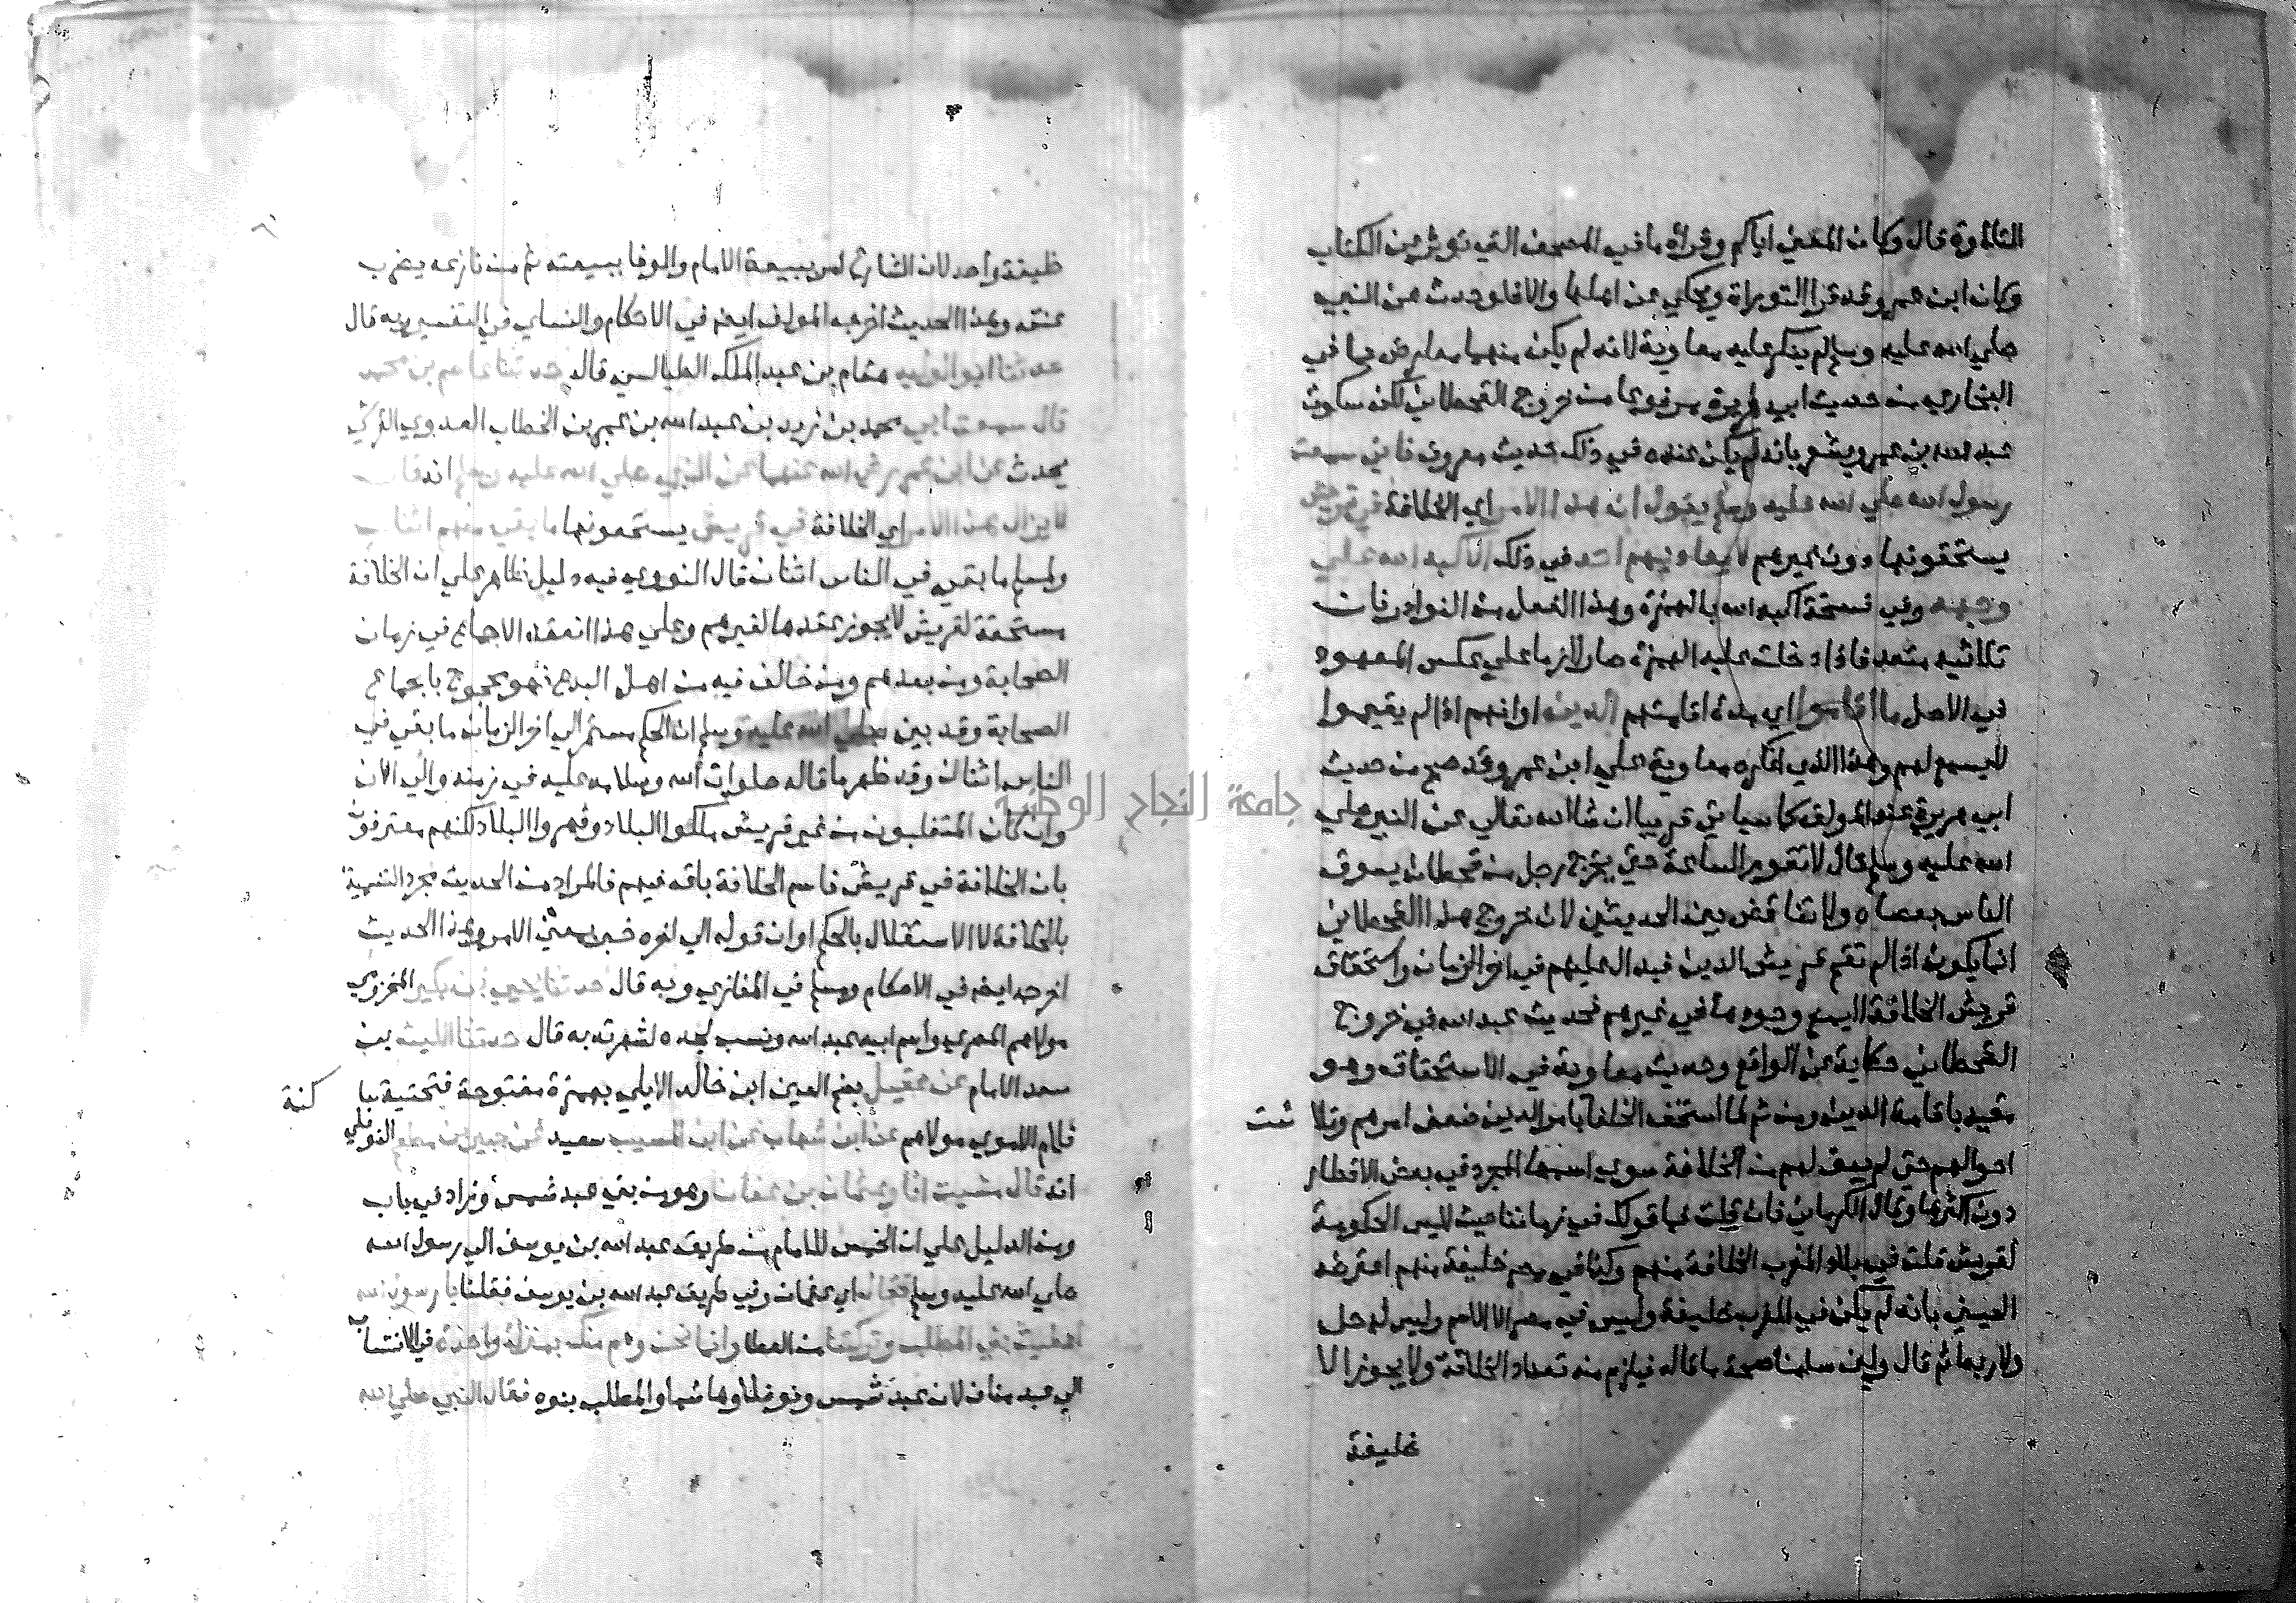 التلاوة قال وكان المعنى اياكم وقراة ما في الصحف التي تؤثر عن الكتاب
وكان ابن عمرو قد قرا التوراة ويحكي عن اهلها والا فلو حدث عن النبي
صلي الله عليه وسلم لم ينكر عليه معاوية لانه لم يكن متهما معارض بما في
البخاري من حديث ابي هريرة مرفوعا من خروج القحطاني لكن سكوت
عبد الله بن عمرو يشعر بانه لم يكن عنده في ذلك حديث معروف فاني سمعت
رسول الله صلي الله عليه وسلم يقول ان هذا الامر اي الخلافة في قريش
يستحقونها دون غيرهم لا يعاديهم احد في ذلك الا كبه الله علي
وجهه وفي نسخة اكبه الله بالهمزة وهذا الفعل من النوادر فان
ثلاثيه متعد فاذا دخلت عليه الهمزة صار لازما علي عكس المعهود
في الاصل ما اقاموا اي مدة اقامتهم الدين او انهم اذا لم يقيموا
لا يسمع لهم وهذا الذي انكره معاوية علي ابن عمرو قد صح من حديث
ابي هريرة عند المولف كما سياتي قريبا ان شا الله تعالي عن النبي صلي
الله عليه وسلم قال لا تقوم الساعة حتي يخرج رجل من قحطان يسوق
الناس بعصاه ولا تناقض بين الحديثين لان خروج هذا القحطاني
انما يكون اذا لم تقم قريش الدين فيدال عليهم في اخر الزمان واستحقاق
قريش الخلافة لا يمنع وجودها في غيرهم فحديث عبد الله في خروج
القحطاني حكاية عن الواقع وحديث معاوية في الاستحقاق وهو
مقيد باقامة الدين ومن ثم لما استخف الخلفا بامر الدين ضعف امرهم وتلا شت
احوالهم حتي لم يبق لهم من الخلافة سوي اسمها المجرد في بعض الاقطار
دون اكثرها وقال الكرماني فان قلت فما قولك في زماننا حيث ليس الحكومة
لقريش قلت في بلاد المغرب الخلافة منهم وكذا في مصر خليفة منهم اعترضه
العيني بانه لم يكن في المغرب خليفة وليس في مصر الا الاسم وليس له حل
ولا ربط ثم قال ولين سلمنا صحة ما قاله فيلزم منه تعداد الخلافة ولا يجوز الا
خليفة
خليفة واحد لان الشارع امر ببيعة الامام والوفا ببيعته ثم من نازعه يضرب
عنقه وهذا الحديث اخرجه المولف ايضا في الاحكام والنساي في التفسير وبه قال
حدثنا ابو الوليد هشام بن عبد الملك الطيالسي قال حدثنا عاصم بن محمد
قال سمعت ابي محمد بن زيد بن عبد الله بن عمر بن الخطاب العدوي القرشي
يحدث عن ابن عمر رضي الله عنهما عن النبي صلي الله عليه وسلم انه قال
لا يزال هذا الامر اي الخلافة في قريش يستحقونها ما بقي منهم اثنان
ولمسلم ما بقي في الناس اثنان قال النووي فيه دليل ظاهر علي ان الخلافة
مستحقة لقريش لا يجوز عقدها لغيرهم وعلي هذا انعقد الاجماع في زمان
الصحابة ومن بعدهم ومن خالف فيه من اهل البدع فهو محجوج باجماع
الصحابة وقد بين صلي الله عليه وسلم ان الحكم مستمر الي اخر الزمان ما بقي في
الناس اثنان وقد ظهر ما قاله صلوات الله وسلامه عليه في زمنه والي الان
وان كان المتغلبون من غير قريش ملكوا البلاد وقهروا البلاد لكنهم معترفون
بان الخلافة في قريش فاسم الخلافة باق فيهم فالمراد من الحديث مجرد التسمية
بالخلافة لا الاستقلال بالحكم او ان قوله الي اخره خبر بمعني الامر وهذا الحديث
اخرجه ايضا في الاحكام ومسلم في المغازي وبه قال حدثنا يحيي بن بكير المخزومي
مولاهم المصري واسم ابيه عبد الله ونسب لجده لشهرته به قال حدثنا الليث بن
سعد الامام عن عقيل بضم العين ابن خالد الايلي بهمزة مفتوحة فتحتية سا كنة
فلام الاموي مولاهم عن ابن شهاب عن ابن المسيب سعيد عن جبير بن مطعم النوفلي
انه قال مشيت انا وعثمان بن عفان وهو من بني عبد شمس وزاد في باب
ومن الدليل علي ان الخمس للامام من طريق عبد الله بن يوسف الي رسول الله
صلي الله عليه وسلم فقال اي عثمان وفي طريق عبد الله بن يوسف فقلنا يا رسول الله
اعطيت بني المطلب وتركتنا من العطا وانما نحن وهم منك بمنزلة واحدة في الانتساب
الي عبد مناف لان عبد شمس ونوفلا وهاشما والمطلب بنوه فقال النبي صلي الله
جامعة النجاح الوطنية